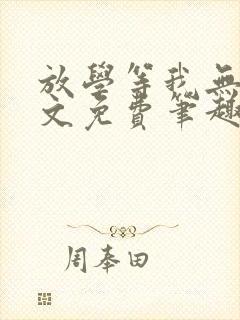 放學等我無
文免費筆趣
周奉田